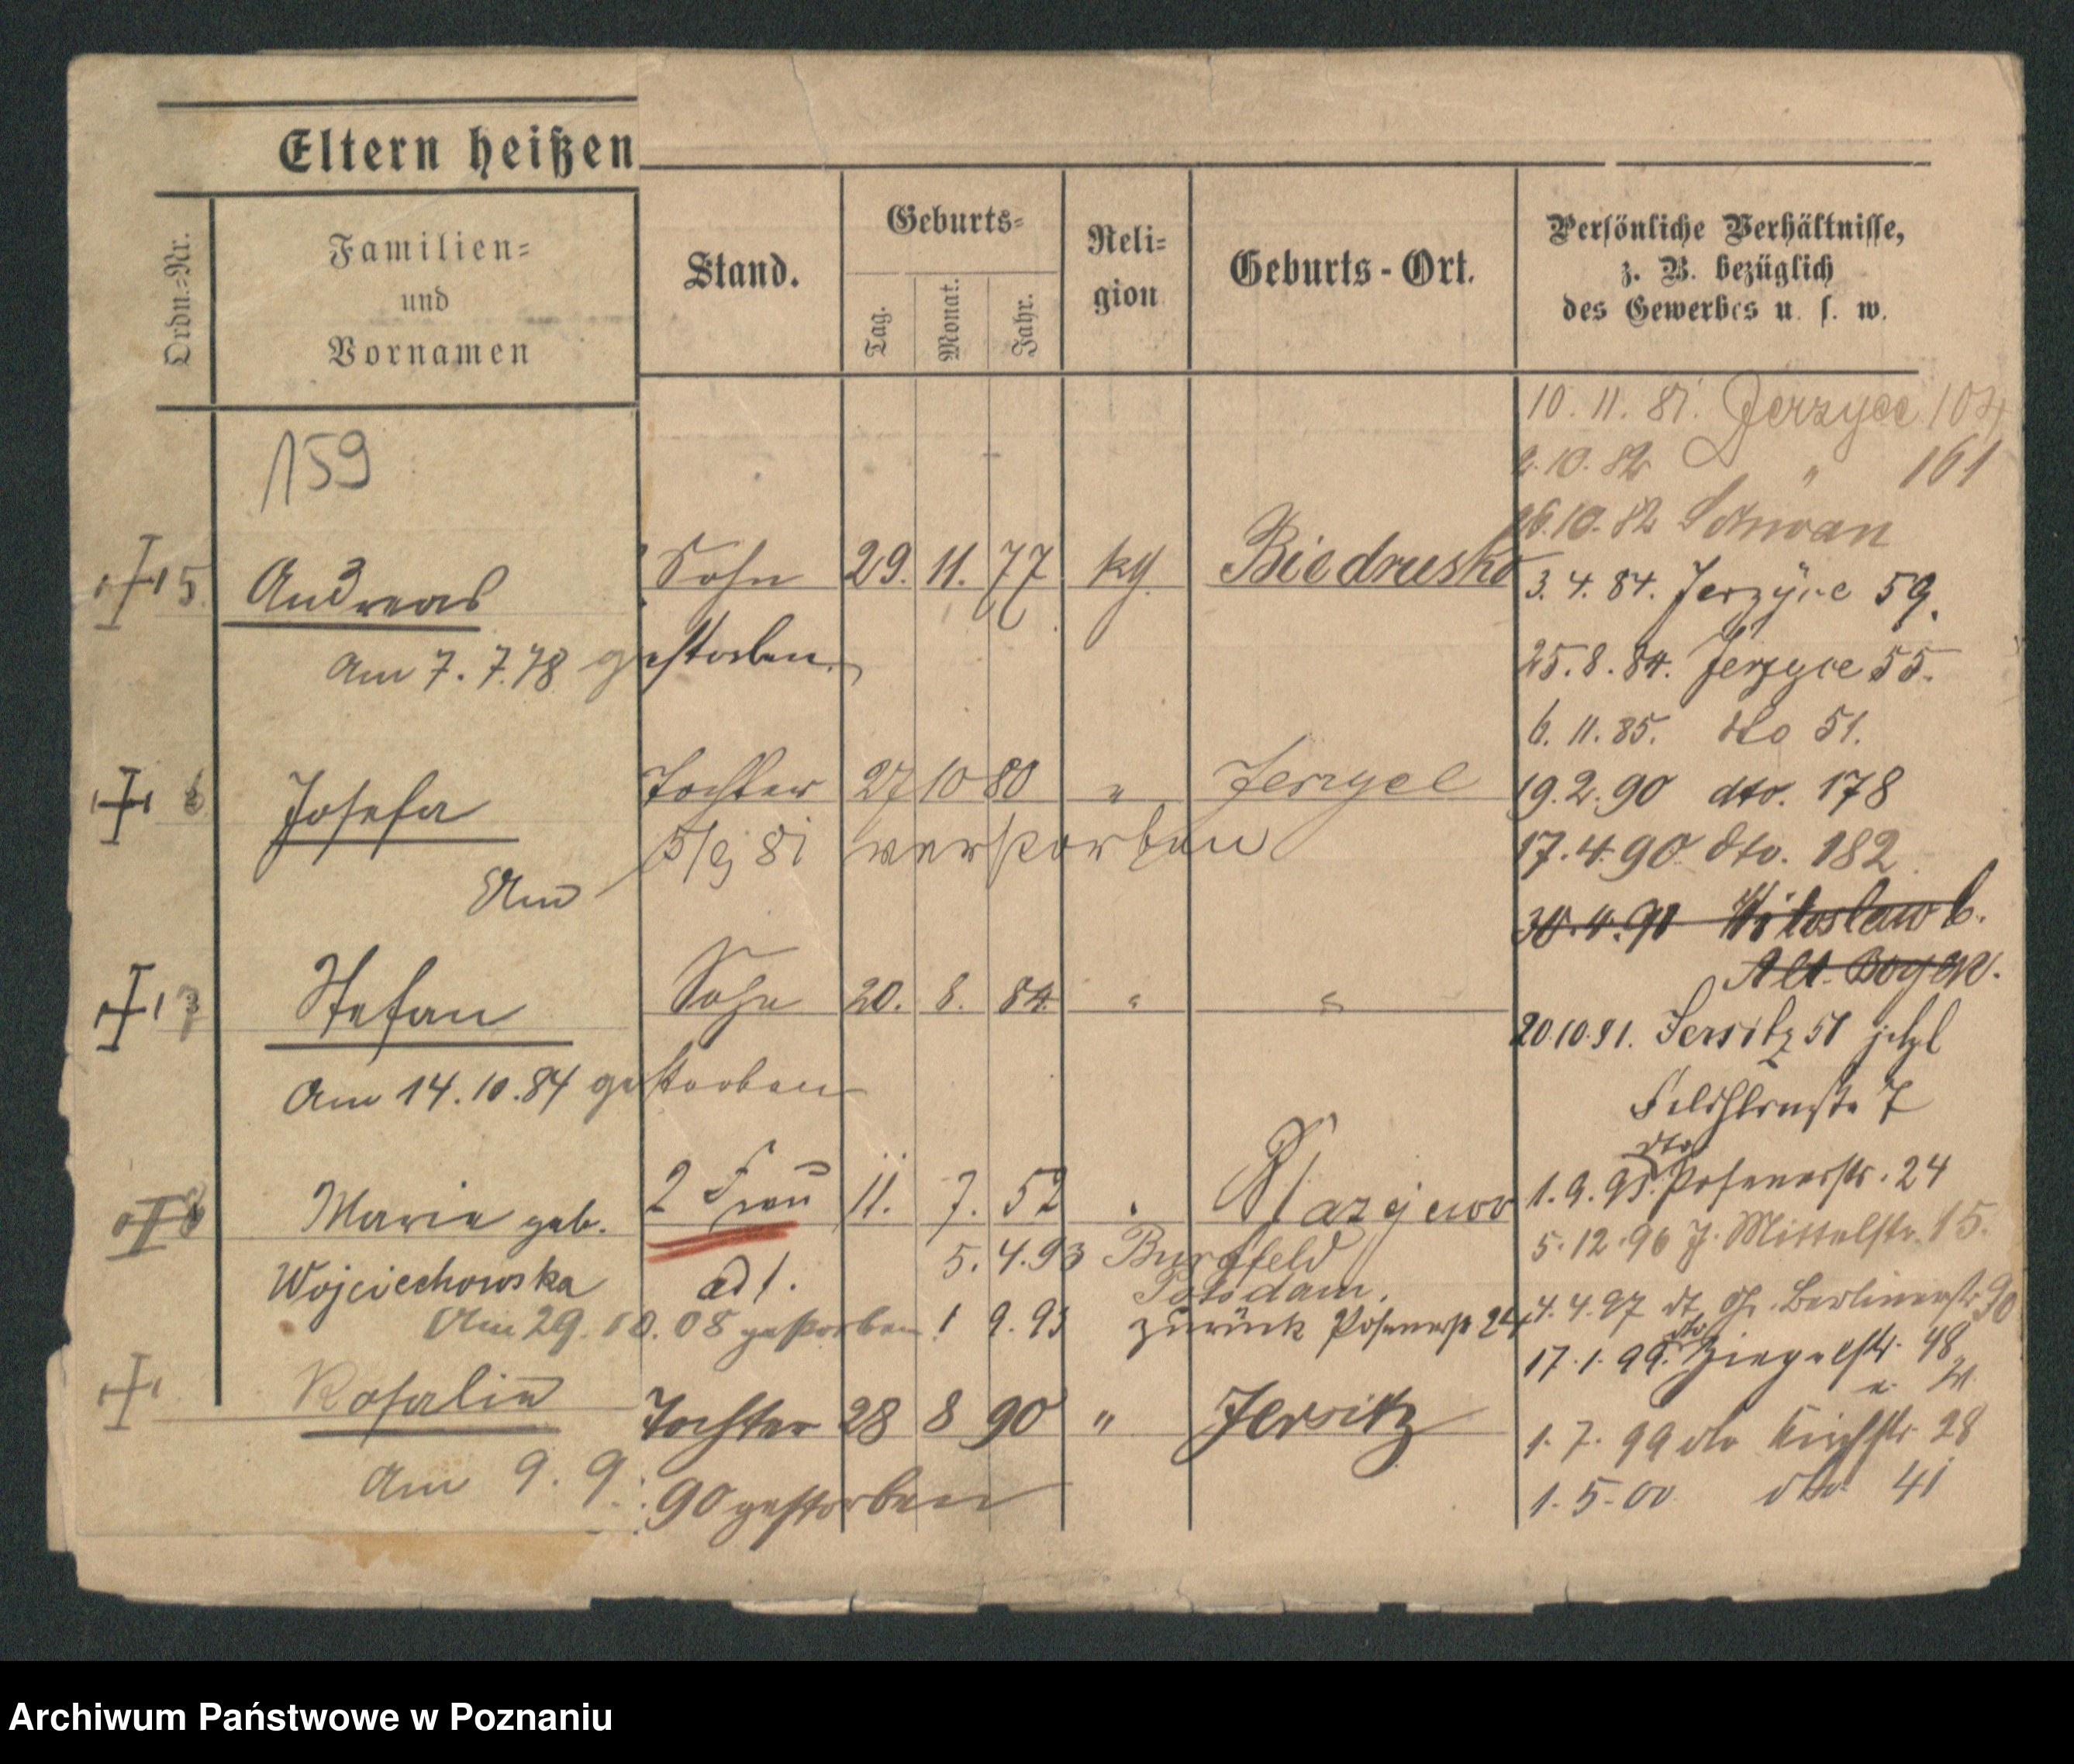 Eltern heißen
Ordn.-Nr.
Familien-
und
Vornamen
Stand.
Geburts-
Tag.
Monat.
Jahr.
Reli-
gion
Geburts-Ort.
Persönliche Verhältnisse,
z. B. bezüglich
des Gewerbes u. s. w.
159
5 Andreas Sohn 29. 11. 77 kg. Biedrusko
am 7. 7. 78 gestorben.
Josefa Tochter 27 10 80 " Jerzyce
Am 5/9 81 verstorben
Stefan Sohn 20. 8. 84 " "
Am 14.10.84 gestorben
Maria geb. 2 Frau 11. 7. 52
Wojciechowska ad 1. 5. 4. 93
Potsdam.
Am 29. 10. 08 gestorben 1 9. 93 zurück Posenerstr 24
Rosalia Tochter 28 8 90 " Jersitz
am 9. 9. 90 gestorben
10. 11. 81. Jerzyce 104
2. 10. 82 " 161
26.10.82 Schwan
3. 4. 84. Jerzyce 59.
25. 8. 84. Jerzyce 55.
6. 11. 85. dto 51.
19. 2. 90 dto. 178
17. 4. 90. dto. 182
20.10.91. Jersitz 51 jetzt
7
dto
1. 9. 93. Posenerstr. 24
5. 12. 96 J. Mittelstr. 15.
4. 4. 97 Berlinerstr 90
dto
17. 1. 99. Ziegelstr. 48
1. 7. 99 dto Kirchstr. 28
1. 5. 00 dto 41
Archiwum Państwowe w Poznaniu